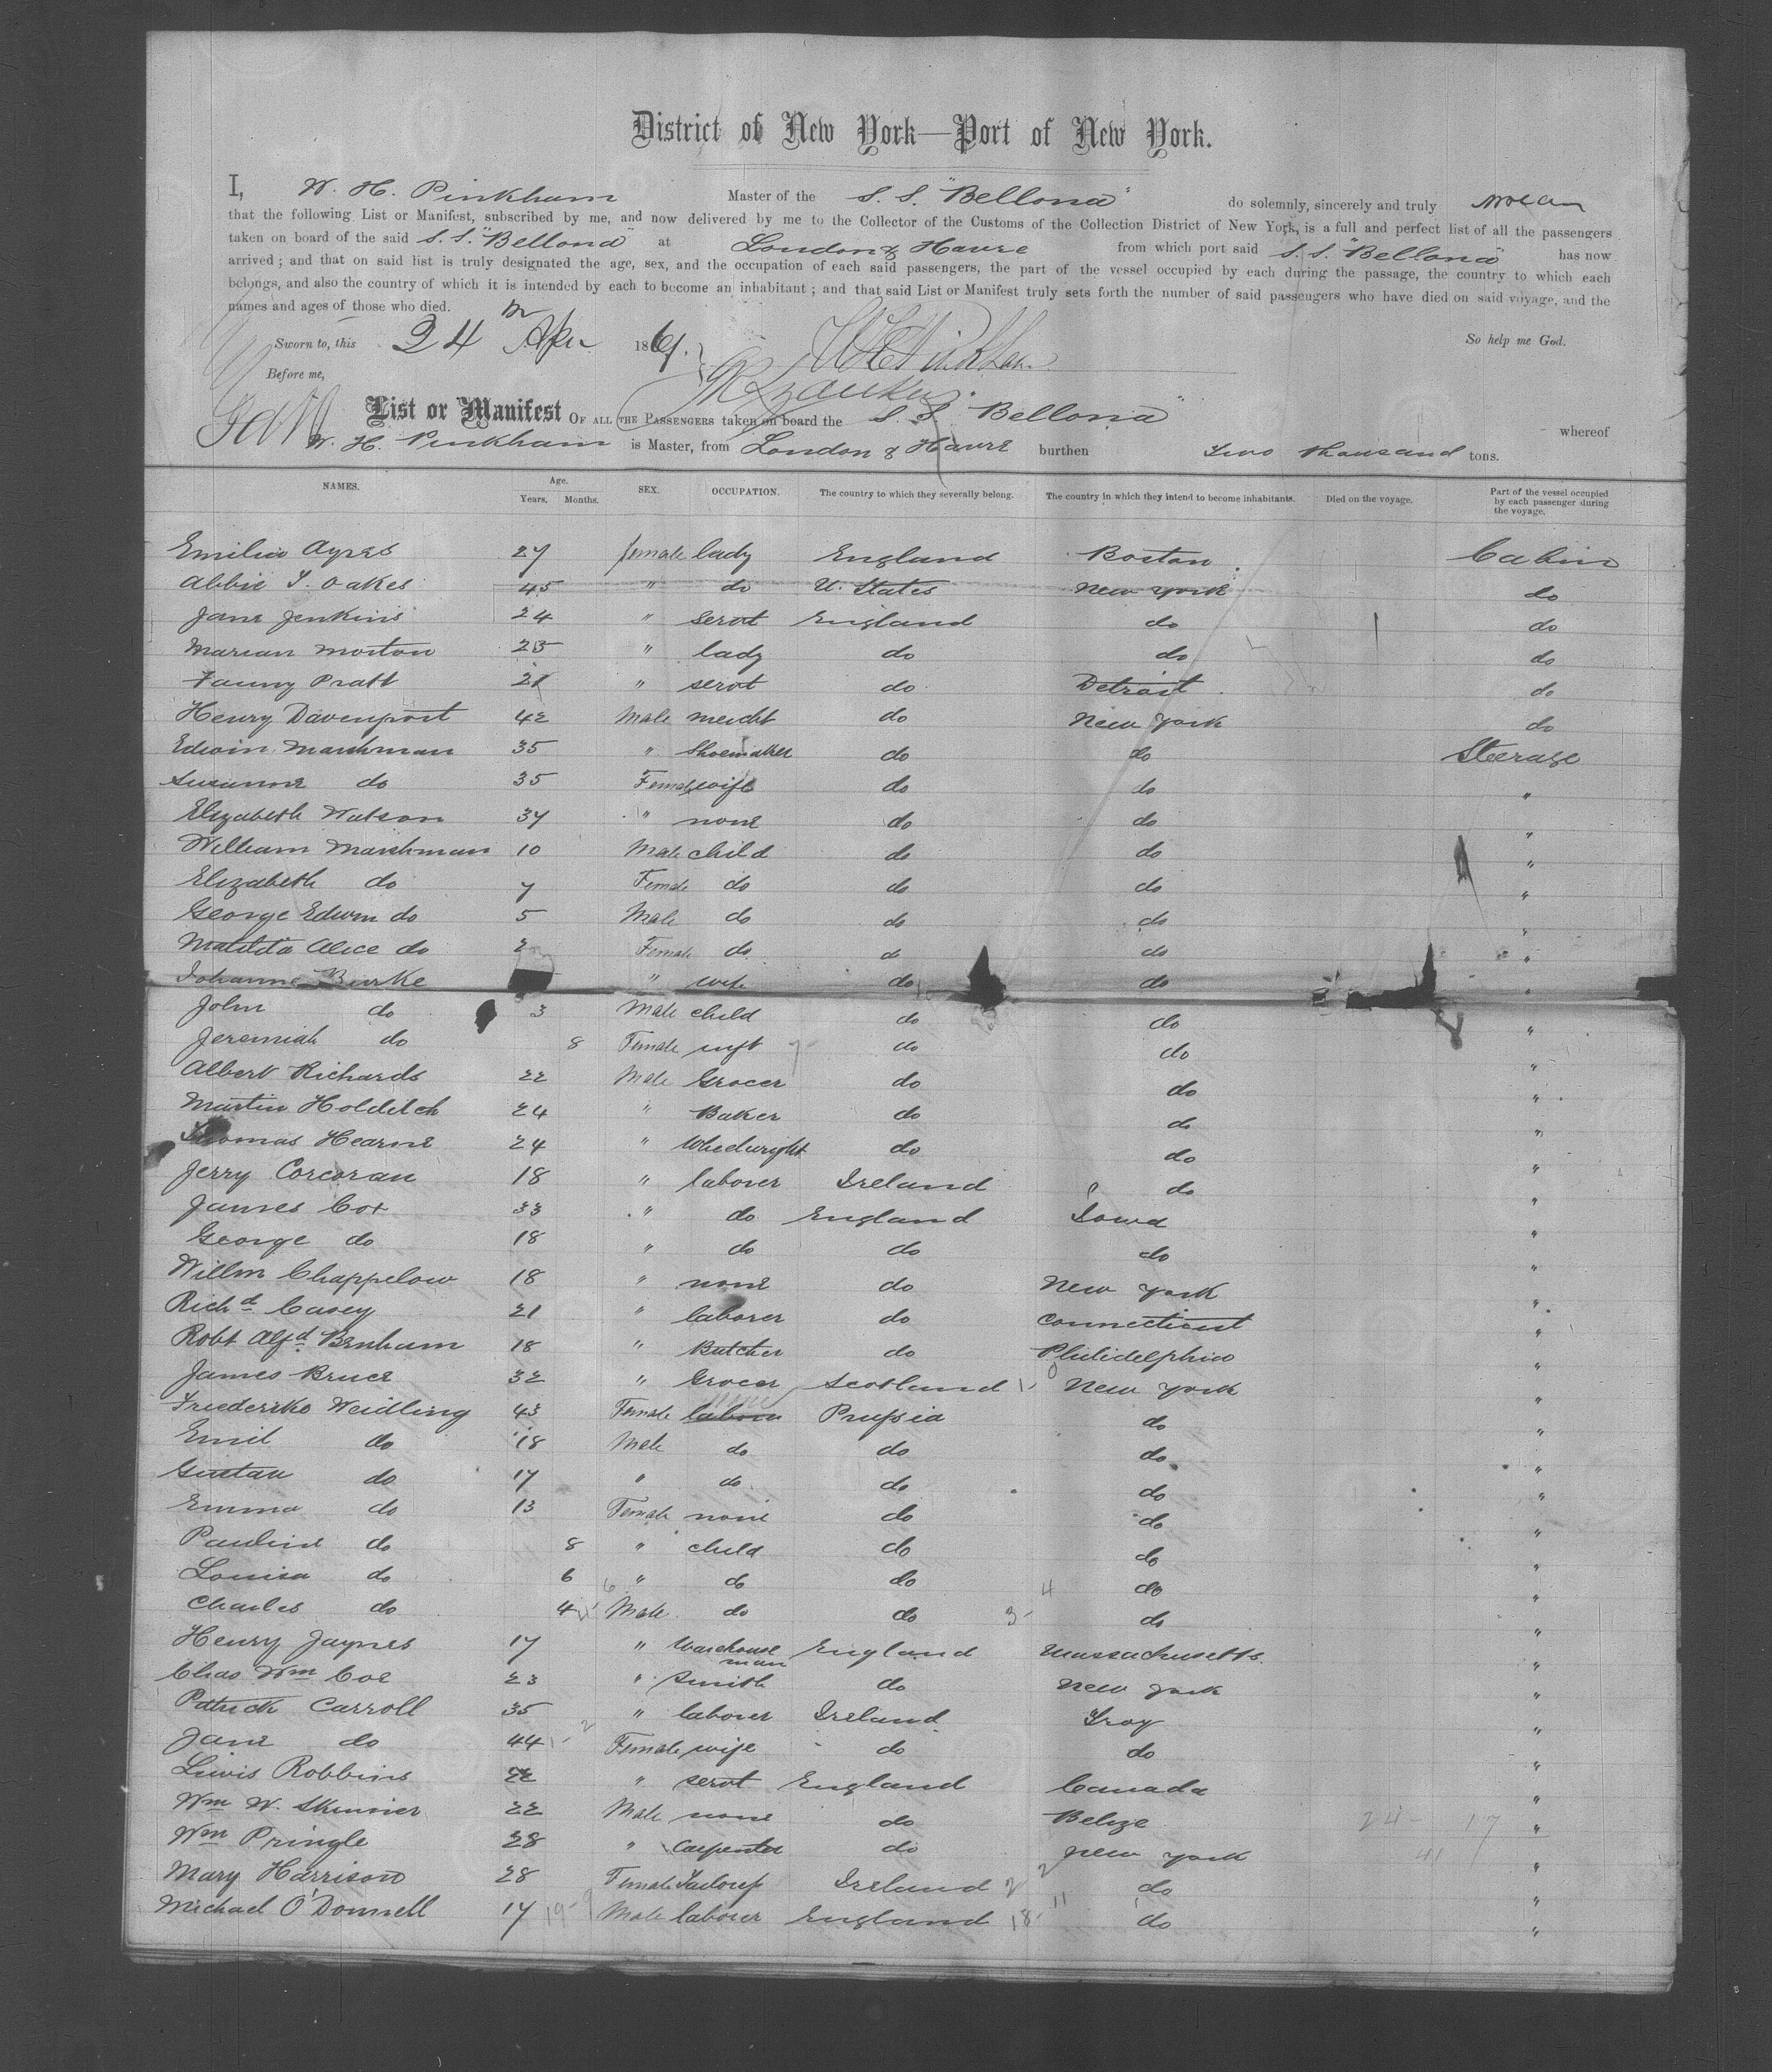 District of New York—Port of New York.
I, W. H. Pinkham Master of the S. S. "Bellona" do solemnly, sincerely and truly swear
that the following List or Manifest, subscribed by me, and now delivered by me to the Collector of the Customs of the Collection District of New York, is a full and perfect list of all the passengers
taken on board of the said S. S. "Bellona" at London & Havre from which port said S. S. "Bellona" has now
arrived; and that on said list is truly designated the age, sex, and the occupation of each said passengers, the part of the vessel occupied by each during the passage, the country to which each
belongs, and also the country of which it is intended by each to become an inhabitant; and that said List or Manifest truly sets forth the number of said passengers who have died on said voyage, and the
names and ages of those who died.
So help me God.
Sworn to, this 24 Apr 186
W H Pinkham
Before me,
List or Manifest OF ALL THE PASSENGERS taken on board the S. S. "Bellona" whereof
W. H. Pinkham is Master, from London & Havre burthen Two thousand tons.
NAMES. Age. Years. Months. SEX. OCCUPATION. The country to which they severally belong. The country in which they intend to become inhabitants. Died on the voyage. Part of the vessel occupied by each passenger during the voyage.
Emilia Ayres 27 female lady England Boston Cabin
Abbie T. Oakes 45 " do U. States New York do
Jane Jenkins 24 " servt England do do
Marian Morton 25 " lady do do do
Fanny Pratt 21 " servt do Detroit do
Henry Davenport 42 Male mercht do New York do
Edwin Marshman 35 " Shoemaker do do Steerage
Susanne do 35 Female wife do do "
Elizabeth Watson 37 " none do do "
William Marshman 10 Male child do do "
Elizabeth do 7 Female do do do "
George Edwin do 5 Male do do do "
Matilda Alice do 2 Female do do do "
Johanna Burke " wife do do "
John do 3 Male child do do "
Jeremiah do 8 Female inft do do "
Albert Richards 22 Male Grocer do do "
Martin Holditch 24 " Baker do do "
Thomas Hearne 24 " Wheelwright do do "
Jerry Corcoran 18 " laborer Ireland do "
James Cox 33 " do England Iowa "
George do 18 " do do do "
Willm Chappelow 18 " none do New York "
Richd Casey 21 " laborer do Connecticut "
Robt Alfd Benham 18 " Butcher do Philidelphia "
James Bruce 32 " Grocer Scotland New York "
Friederike Weidling 43 Female Prussia do "
Emil do 18 Male do do do "
Gustav do 17 " do do do "
Emma do 13 Female none do do "
Pauline do 8 " child do do "
Louisa do 6 " do do do "
Charles do 4 Male do do do "
Henry Jaynes 17 " Warehouse man England Massachusetts "
Chas Wm Coe 23 " Smith do New York "
Patrick Carroll 35 " laborer Ireland Troy "
Jane do 44 Female wife do do "
Lewis Robbins 22 " servt England Canada "
Wm W. Skinner 22 Male none do Belize "
Wm Pringle 28 " Carpenter do New York "
Mary Harrison 28 Female Tailoress Ireland do "
Michael O'Donnell 17 Male laborer England do "